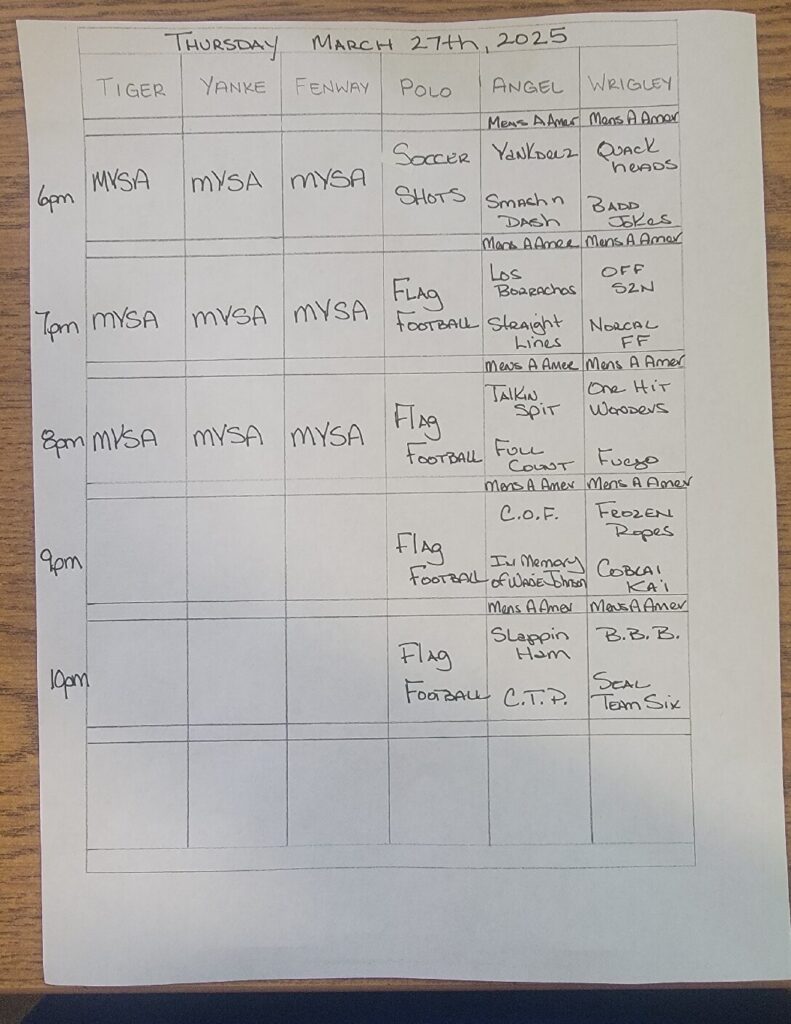 THURSDAY MARCH 27th, 2025
TIGER YANKE FENWAY POLO ANGEL WRIGLEY
Mens A Amer Mens A Amer
6pm MYSA MYSA MYSA SOCCER SHOTS YANKDEEZ QUACK HEADS
SMASH n DASH BADD JOKES
Mens A Amer Mens A Amer
7pm MYSA MYSA MYSA FLAG FOOTBALL LOS BORRACHOS OFF SZN
Straight Lines NORCAL FF
Mens A Amer Mens A Amer
8pm MYSA MYSA MYSA FLAG FOOTBALL TALKIN SPIT ONE HIT WOODERS
FULL COUNT FUEGO
Mens A Amer Mens A Amer
9pm FLAG FOOTBALL C.O.F. FROZEN ROPES
IN MEMORY of WADE Johnson COBLAI KAI
Mens A Amer Mens A Amer
10pm FLAG FOOTBALL Slappin Ham B.B.B.
C.T.P. SEAL TEAM SIX